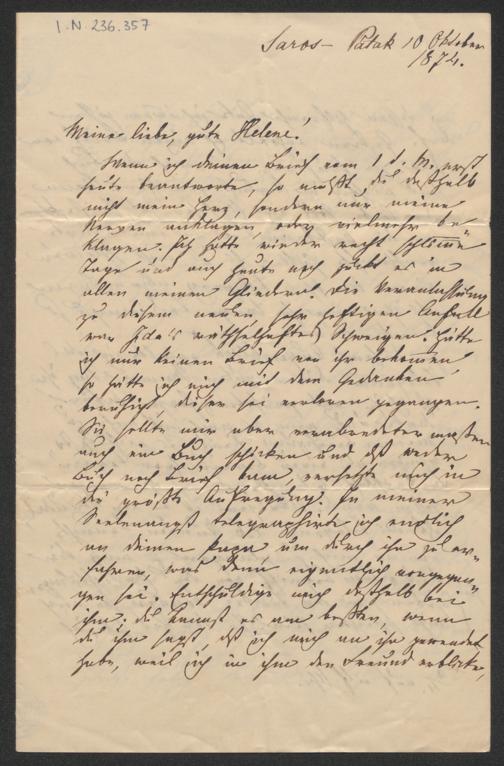 I.N. 236.357
Saros-Patak 10 Oktober
1874.
Meine liebe, gute Helene!
Wenn ich deinen Brief vom 1 d. M. erst
heute beantworte, so mußt du deßhalb
nicht mein Herz, sondern nur meine
Nerven anklagen, oder vielmehr be-
klagen. Ich hatte wieder recht schlimme
Tage und auch heute noch zuckt es in
allen meinen Gliedern. Die Veranlassung
zu diesem neuen, sehr heftigen Anfall
war Ida's räthselhaftes Schweigen. Hätte
ich nur keinen Brief von ihr bekommen,
so hätte ich mich mit dem Gedanken
beruhigt, dieser sei verloren gegangen.
Sie sollte mir aber verabredeter maßen
auch ein Buch schicken und daß weder
Buch noch Brief kam, versetzte mich in
die größte Aufregung. In meiner
Seelenangst telegraphirte ich endlich
an deinen Papa um durch ihn zu er-
fahren, was denn eigentlich vorgegan-
gen sei. Entschuldige mich deßhalb bei
ihm. du kannst es am beßten, wenn
du ihm sagst, daß ich mich an ihn gewendet
habe, weil ich in ihm den Freund erblicke,